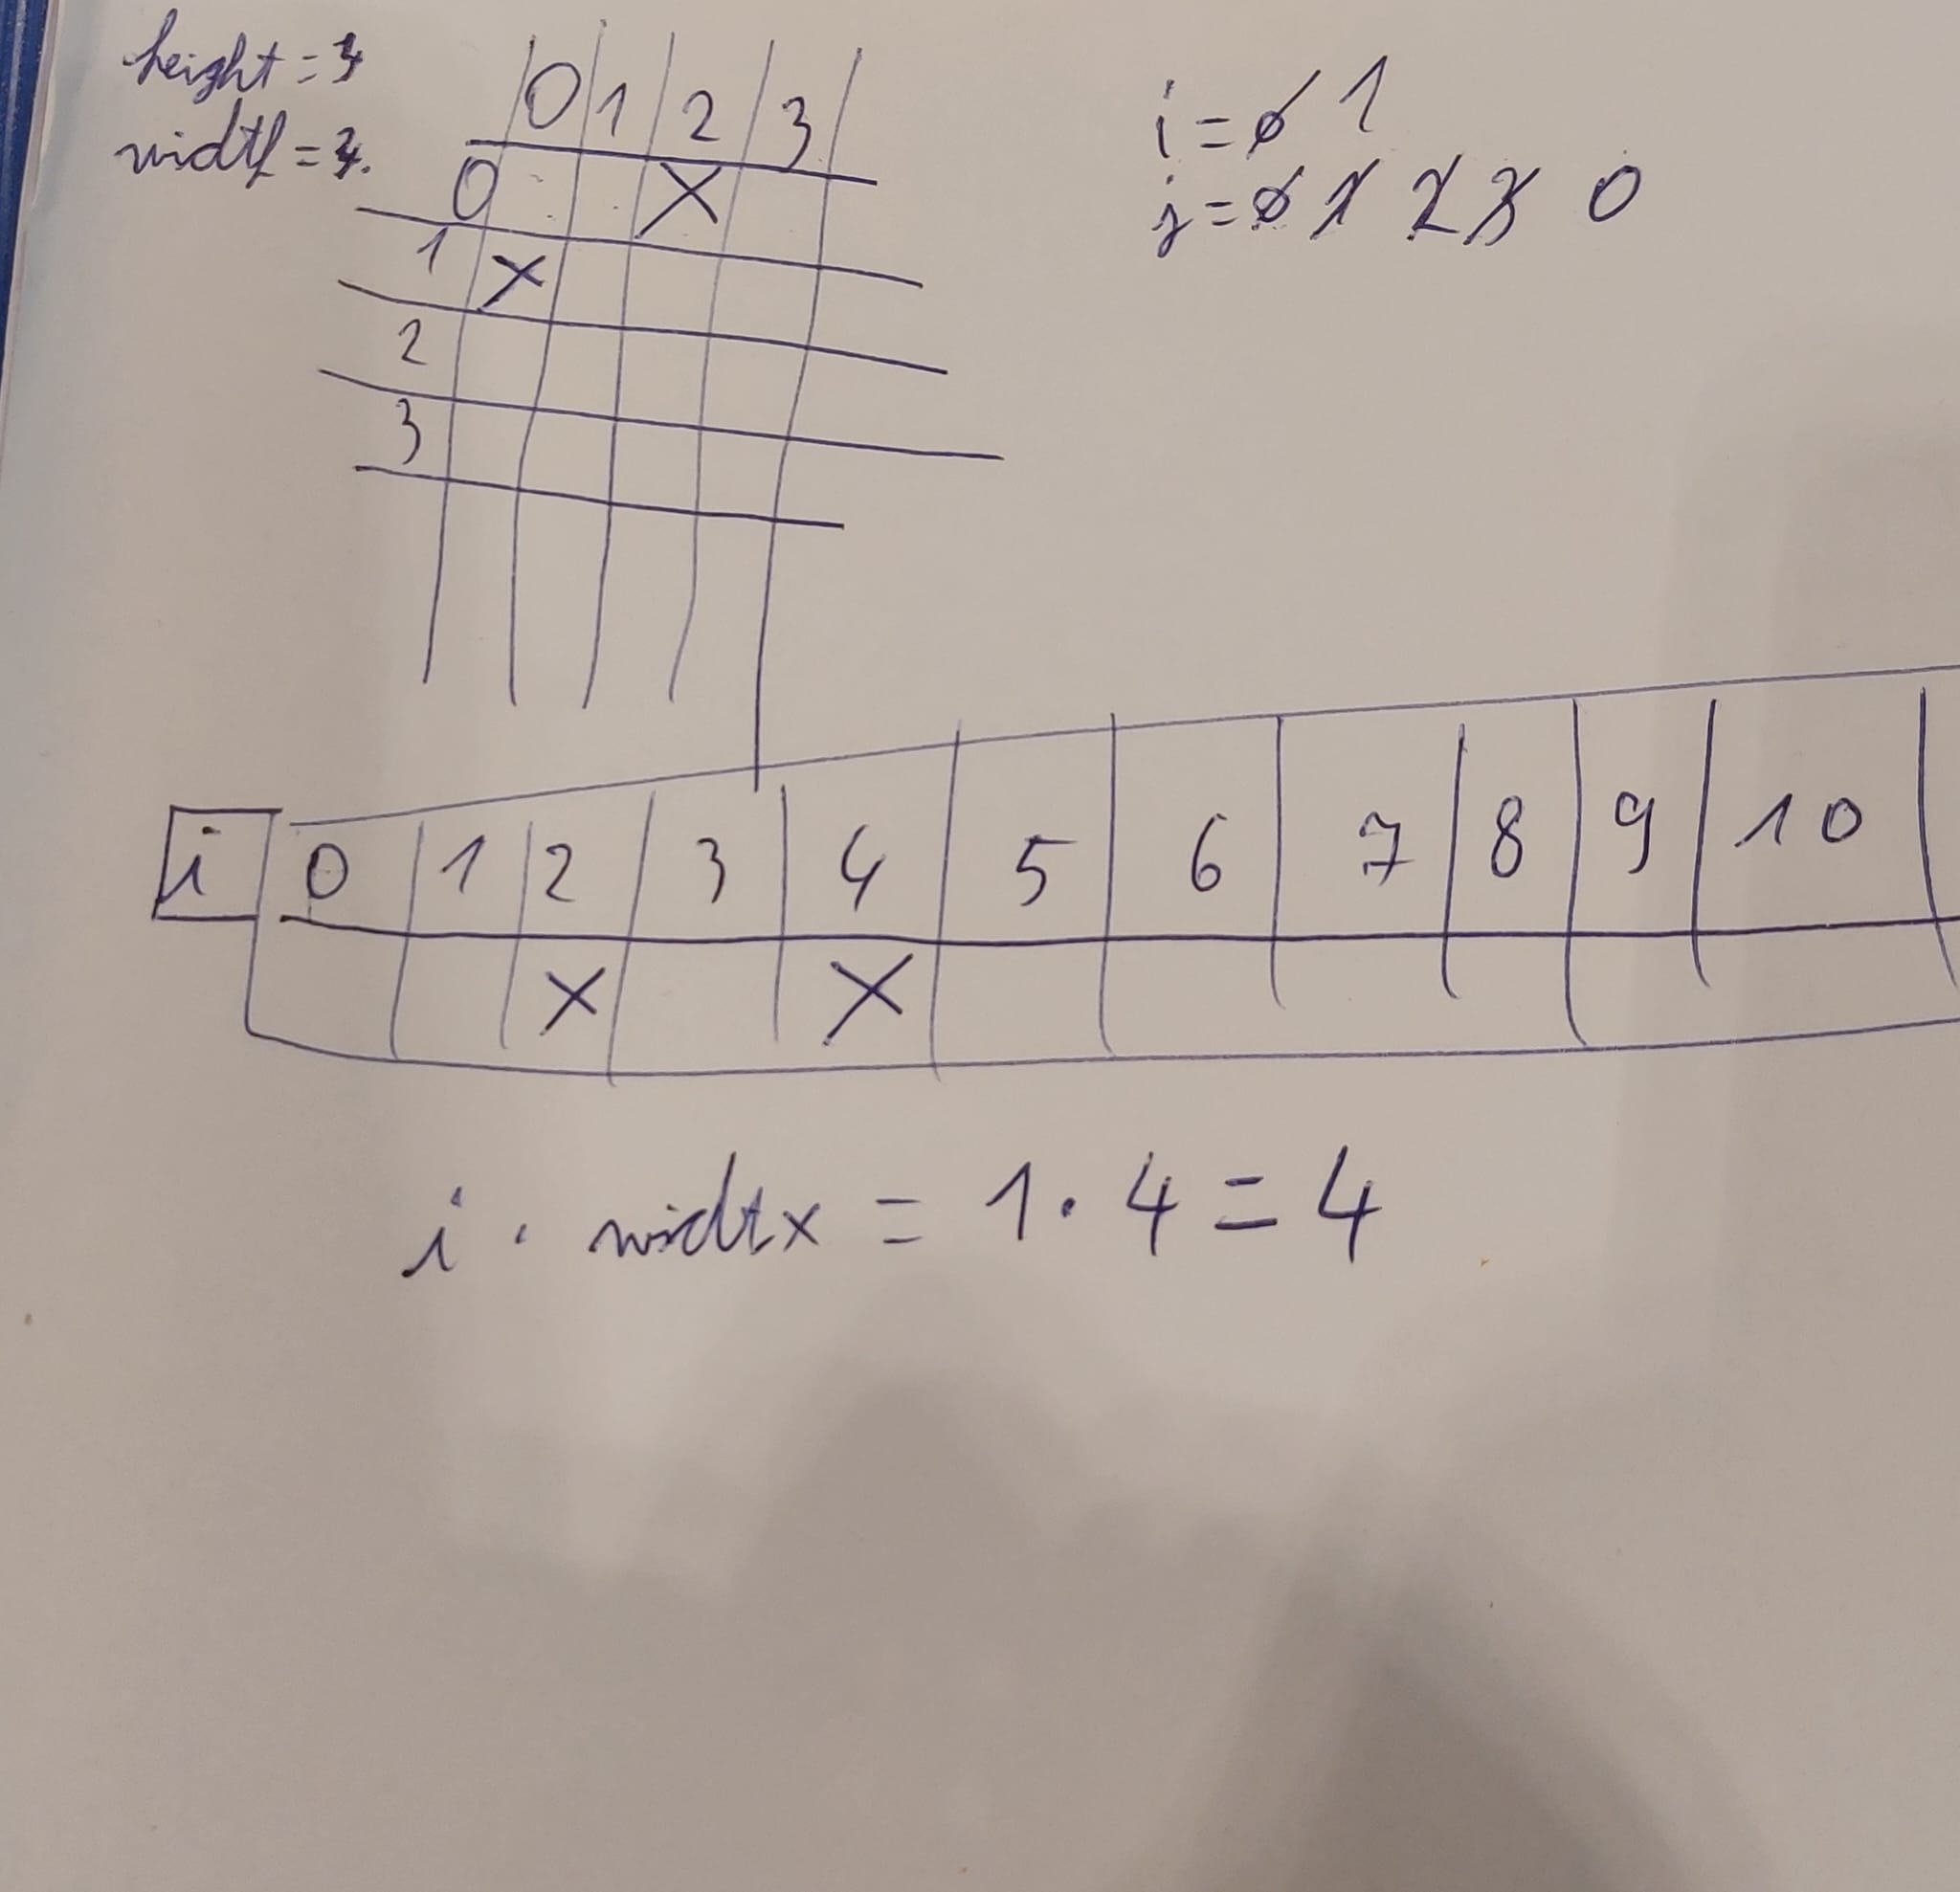 height = 4
width = 4.
0 1 2 3
0 X
1 X
2
3
i = 0 1
j = 0 1 2 3 0
i 0 1 2 3 4 5 6 7 8 9 10
X X
i · widtx = 1 · 4 = 4